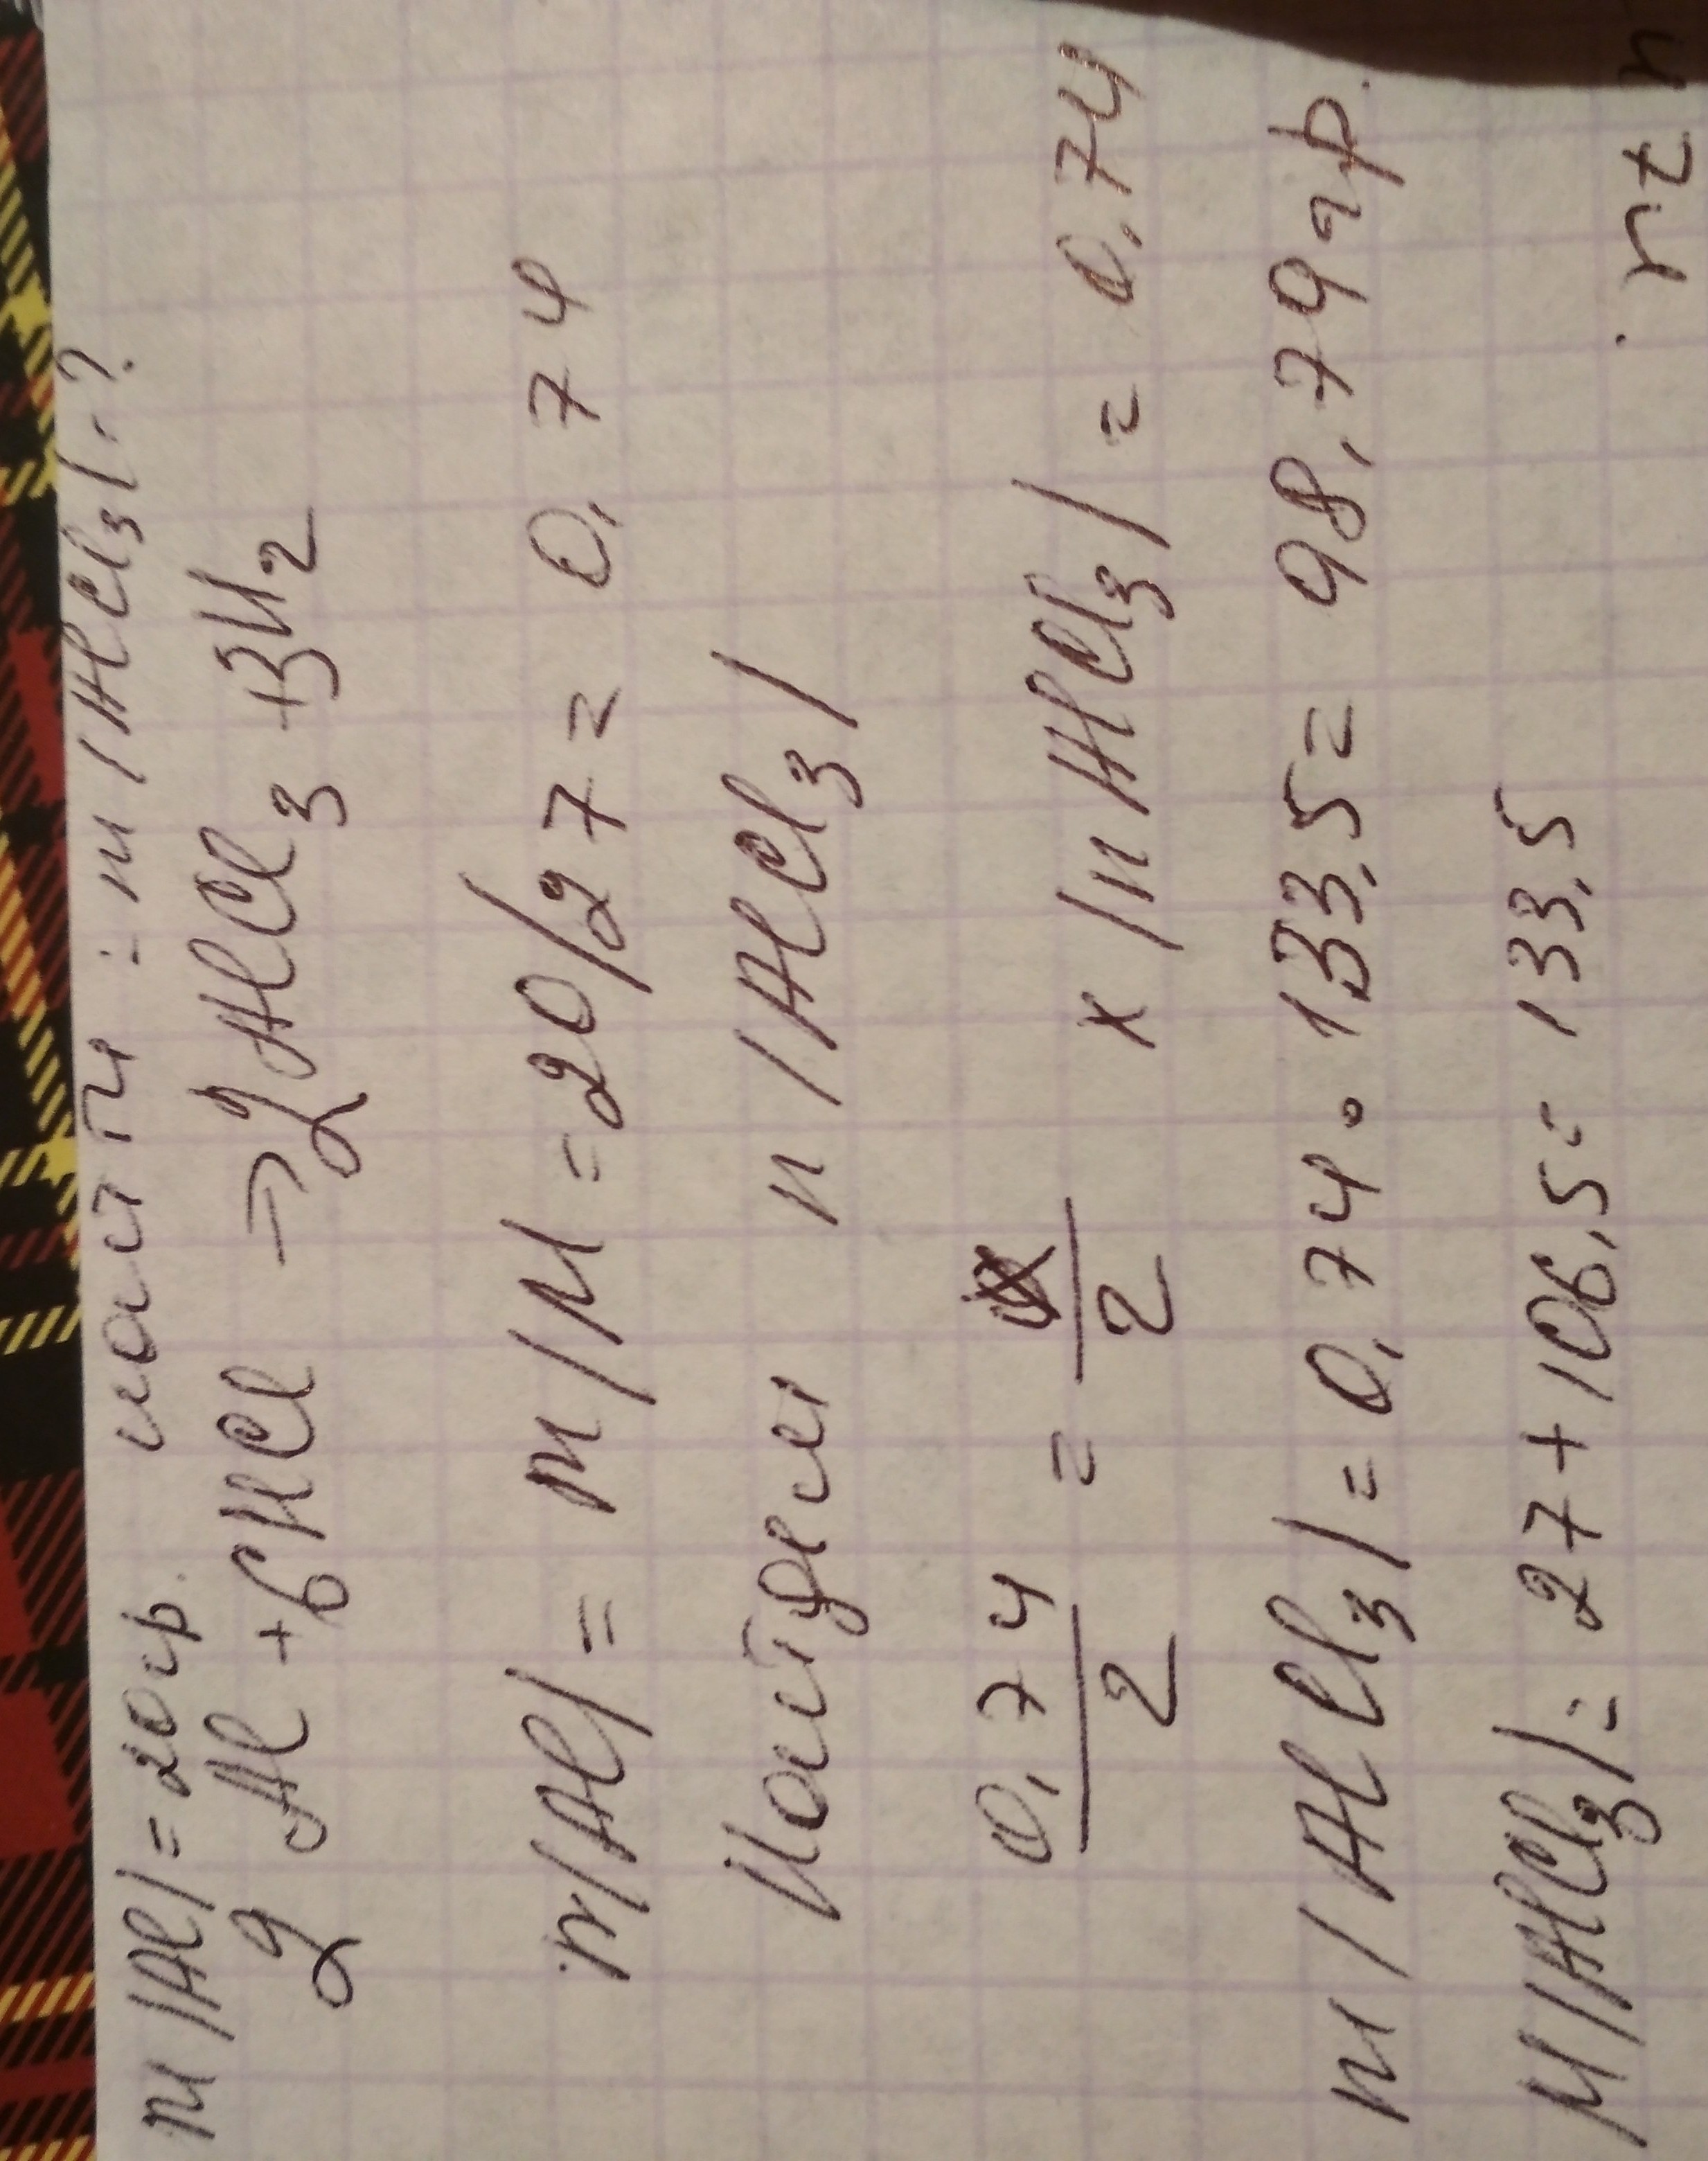 m /Al/ = 20 гр. найти : m /AlCl₃/ - ?
2 Al + 6HCl → 2 AlCl₃ + 3H₂
m/Al/ = m/M = 20/27 = 0,74
Найдем n /AlCl₃/
0,74/2 = x/2 x /n AlCl₃/ = 0,74
m / AlCl₃/ = 0,74 · 133,5 = 98,79 гр.
M /AlCl₃/ = 27 + 106,5 = 133,5